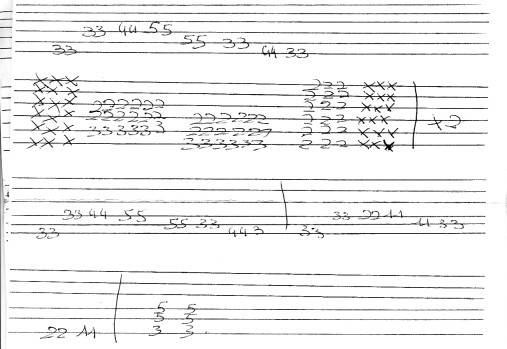 33 33 44 55 55 33 44 33
XXX 222 XXX
XXX 222 XXX
XXX 222222 222 XXX
XXX 222222 222222 222 XXX x2
XXX 333333 222222 222 XXX
XXX 333333 222 XXX
33 33 44 55 55 33 44 3 33 33 22 11 11 33
5 5
5 5
22 11 3 3